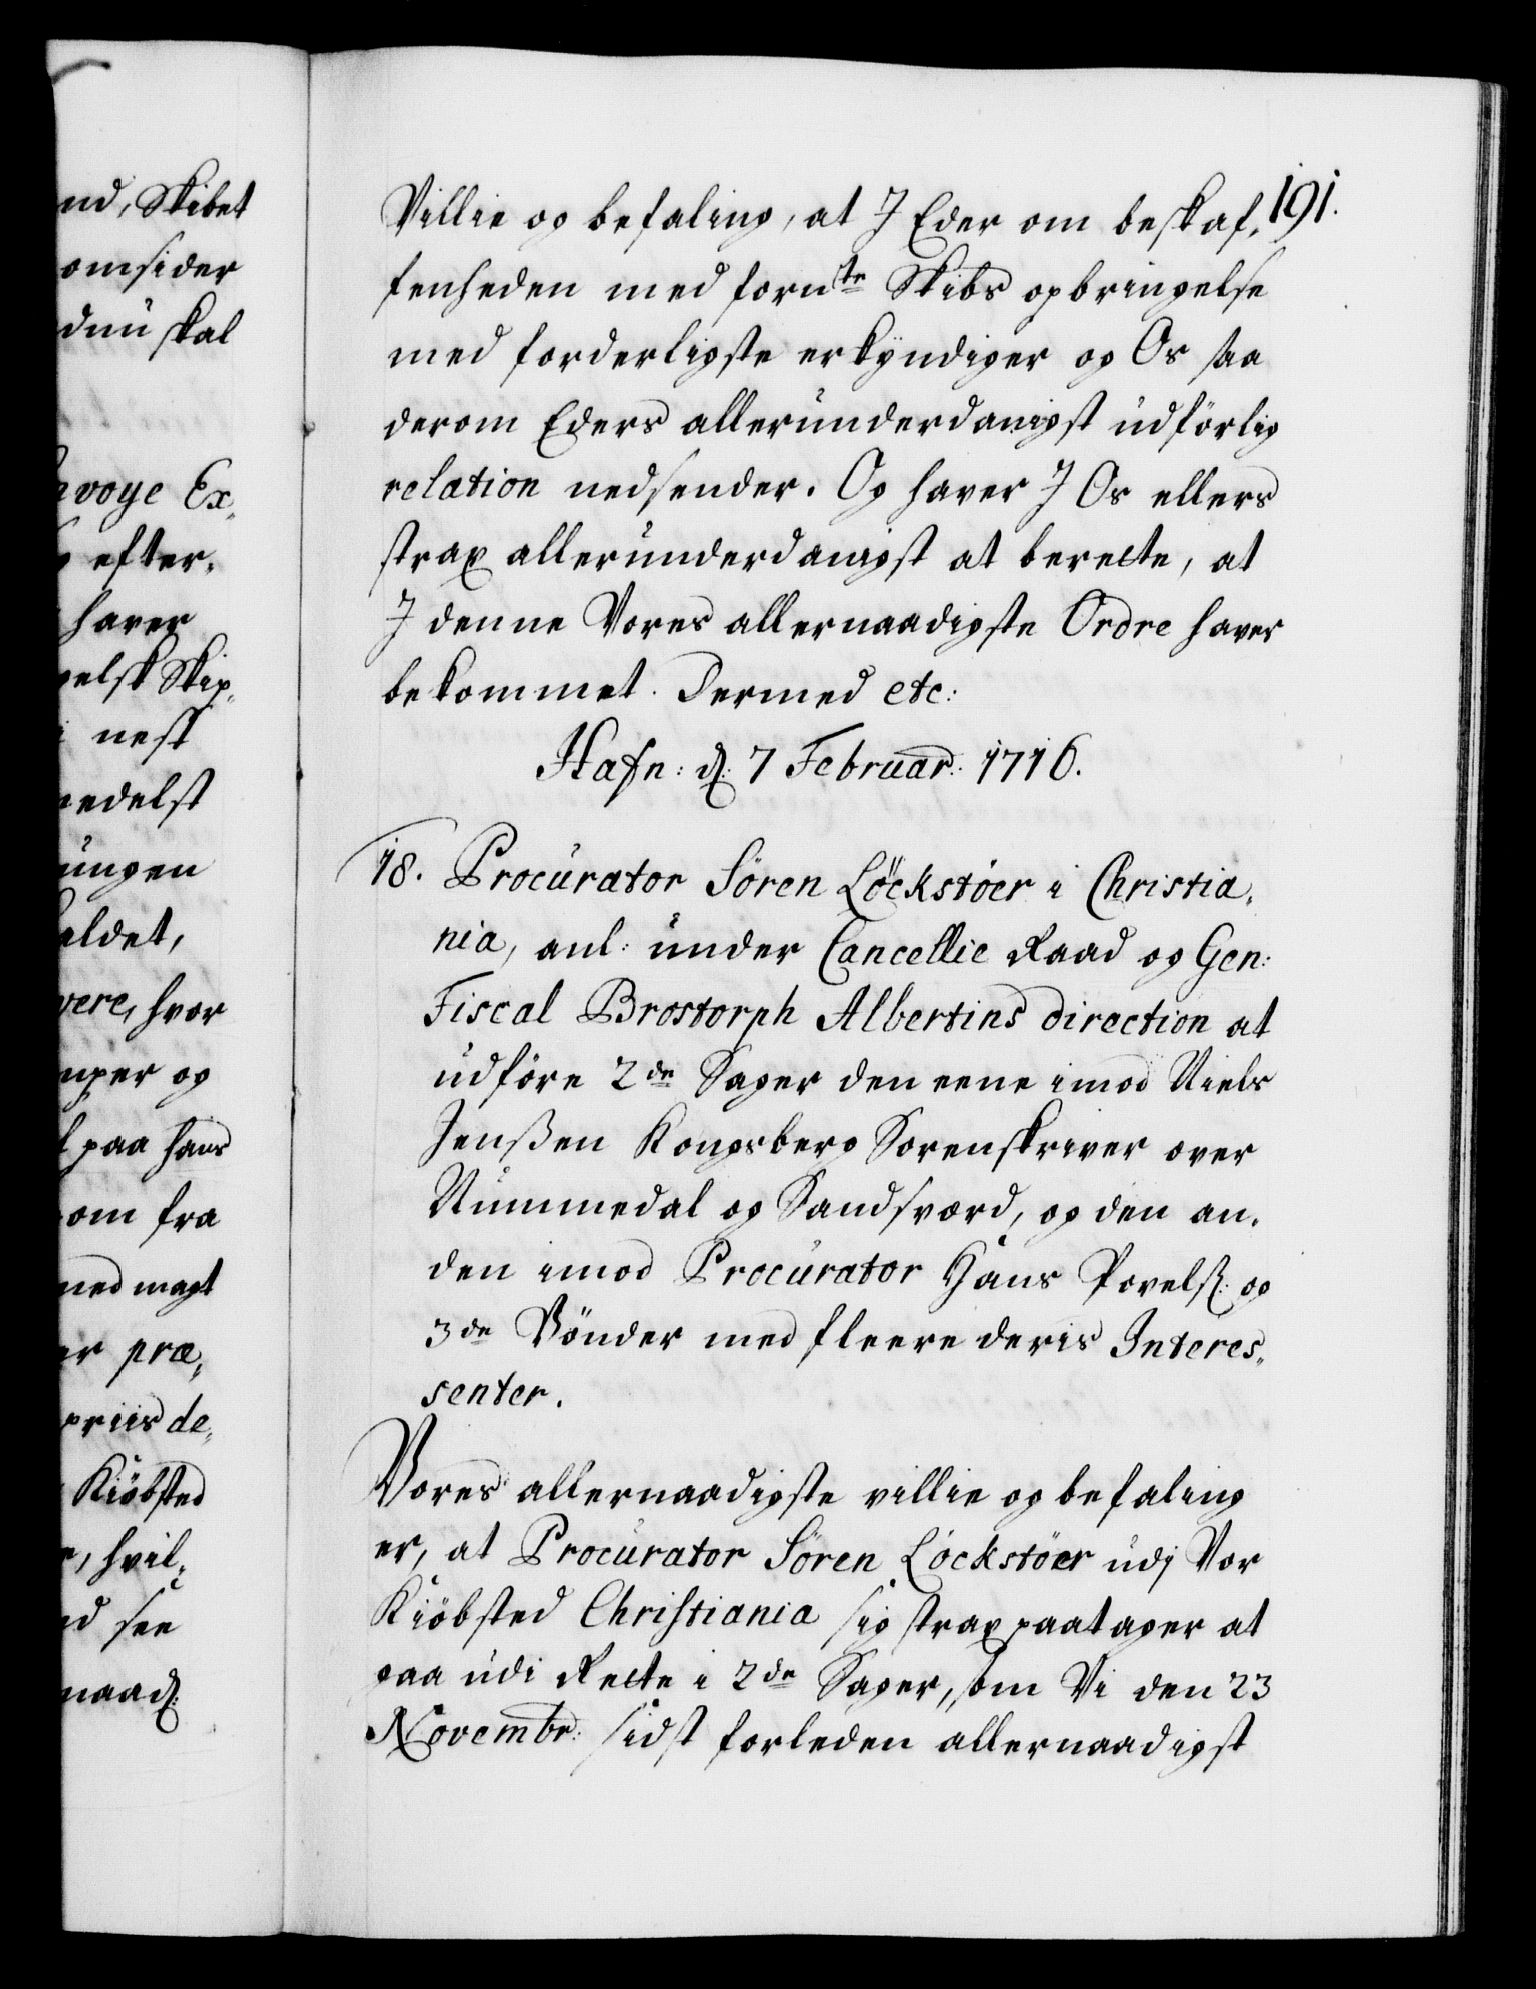 nd, Skibet
omsider
dnu skal
nvoye Ex-
efter-
haver
gelsk Skip-
nest
medelst
ungen
eldet,
vere, hvor
nger og
paa hans
om fra
med magt
er præ-
priis de-
Kiöbsted
e, hvil-
d see
naad:
191.
Villie og befaling, at J Eder om beskaf-
fenheden med fornte Skibs opbringelse
med forderligste erkyndiger og Os saa
derom Eders allerunderdanigst udförlig
relation nedsender. Og haver J Os ellers
strax allerunderdanigst at berette, at
J denne Vores allernaadigste Ordre haver
bekommet. Dermed etc:
Hafn: d: 7 Februar: 1716.
18. Procurator Sören Löckstöer i Christia-
nia, anl: under Cancellie Raad og Gen:
Fiscal Brostorph Albertins direction at
udföre 2de Sager den eene imod Niels
Jenßen Kongsberg Sorenskriver over
Nummedal og Sandsværd, og den an-
den imod Procurator Hans Povelß: og
3de Bönder med fleere deris Interes-
senter.
Vores allernaadigste villie og befaling
er, at Procurator Sören Löckstöer udj Vor
Kiöbsted Christiania sig strax paatager at
gaa udi Rette i 2de Sager, som Vi den 23
Novembr: sidst forleden allernaadigst